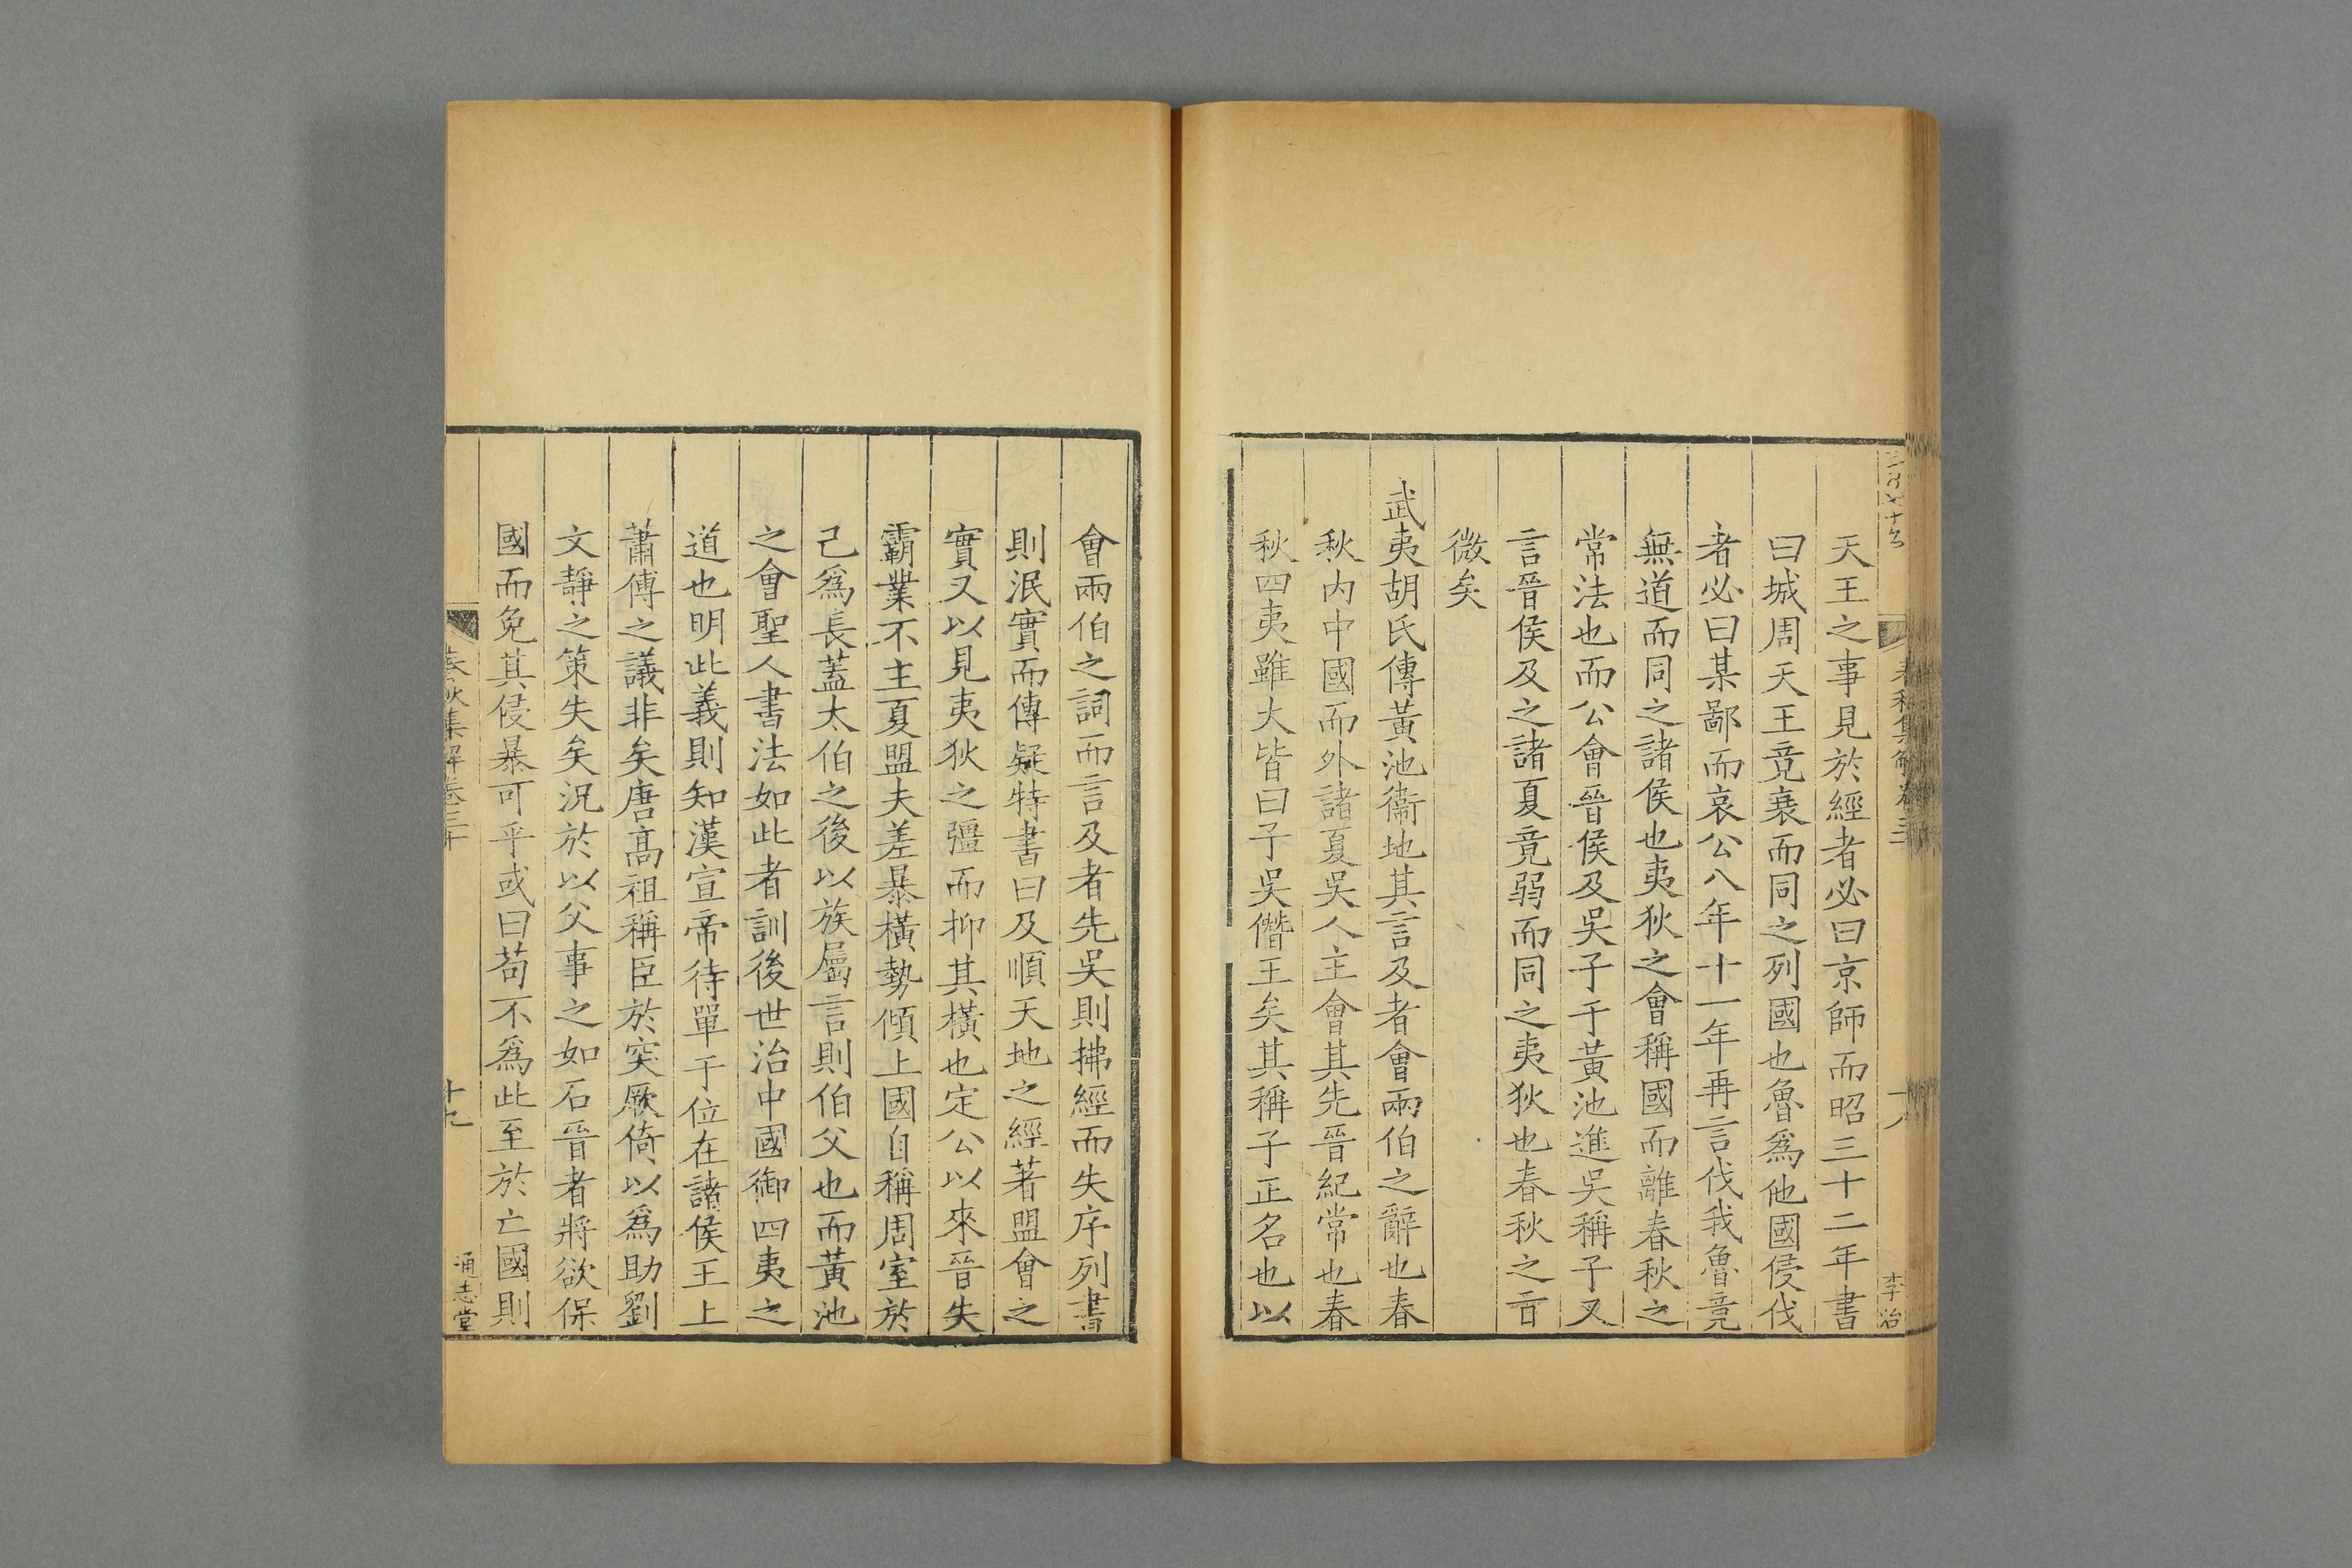 天王之事見於經者必曰京師而昭三十二年書
曰城周天王竟衰而同之列國也魯爲他國侵伐
者必曰某鄙而哀公八年十一年再言伐我魯竟
無道而同之諸侯也夷狄之會稱國而離春秋之
常法也而公會晉侯及吳子于黃池進吳稱子又
言晉侯及之諸夏竟弱而同之夷狄也春秋之旨
微矣
武夷胡氏傳黃池衞地其言及者會兩伯之辭也春
秋內中國而外諸夏吳人主會其先晉紀常也春
秋四夷雖大皆曰子吳僭王矣其稱子正名也以
春秋集解卷三
十八
李治
會兩伯之詞而言及者先吳則拂經而失序列書
則泯實而傳疑特書曰及順天地之經著盟會之
實又以見夷狄之彊而抑其橫也定公以來晉失
霸業不主夏盟夫差暴橫勢傾上國自稱周室於
己爲長蓋太伯之後以族屬言則伯父也而黃池
之會聖人書法如此者訓後世治中國御四夷之
道也明此義則知漢宣帝待單于位在諸侯王上
蕭傅之議非矣唐高祖稱臣於突厥倚以爲助劉
文靜之策失矣況於以父事之如石晉者將欲保
國而免其侵暴可乎或曰苟不爲此至於亡國則
春秋集解卷三十
十九
通志堂